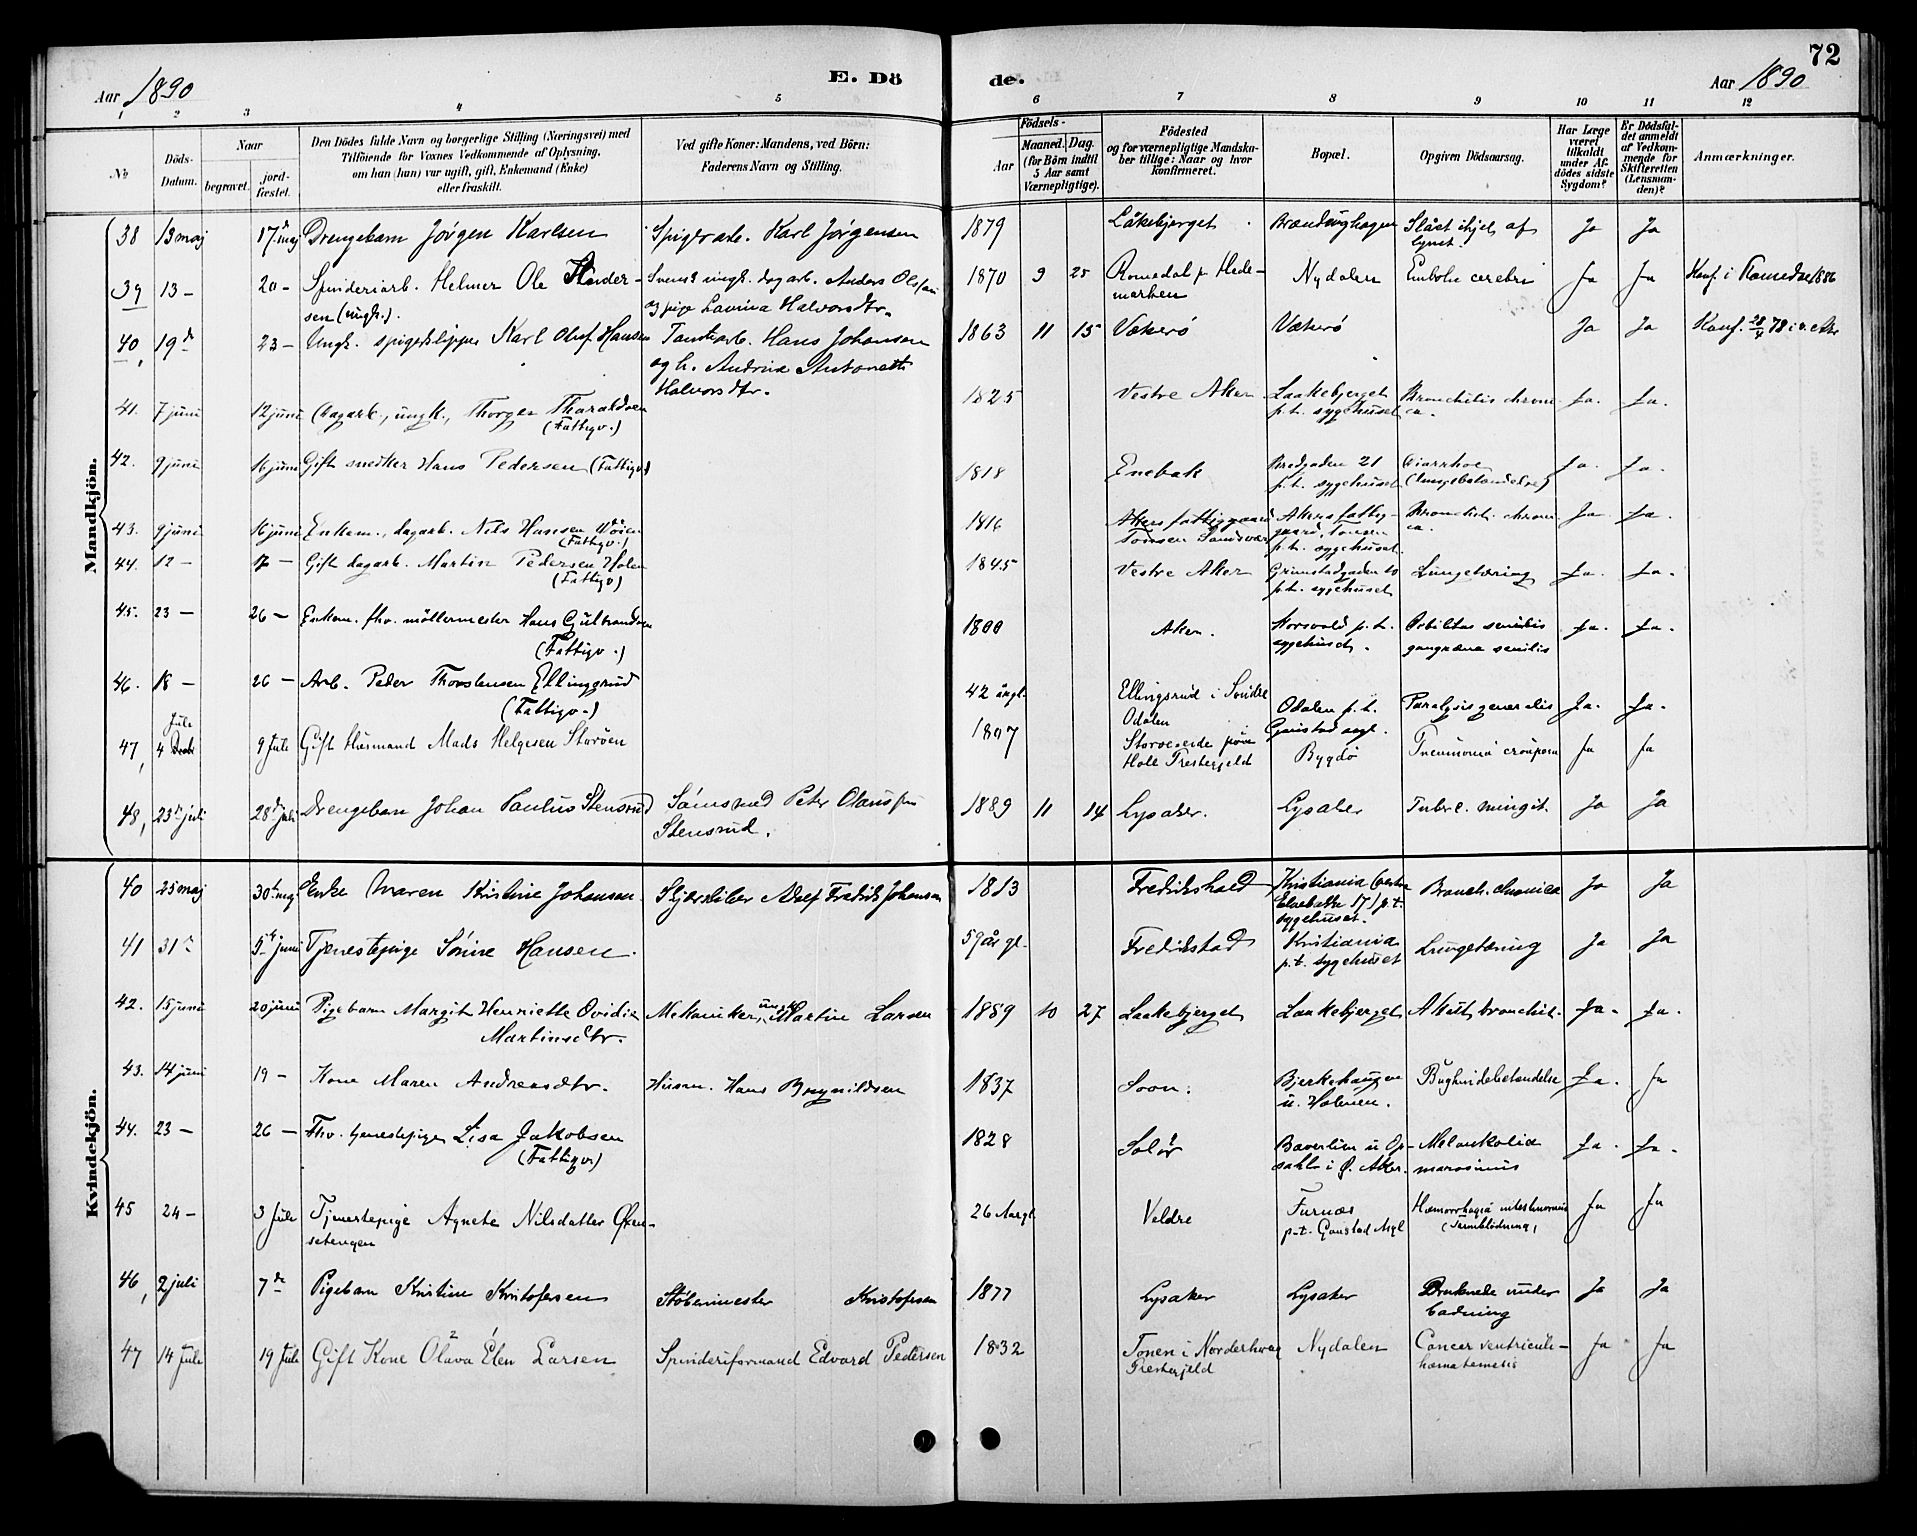 72
Aar 1890
E. Dö
de.
Aar 1890
1 2 3 4 5 6 7 8 9 10 11 12
No
Döds-
Datum.
Naar
begravet.
jord-
fæstet.
Den Dödes fulde Navn og borgerlige Stilling (Næringsvei) med
Tilföiende for Voxnes Vedkommende af Oplysning,
om han (hun) var ugift, gift, Enkemand (Enke)
eller fraskilt.
Ved gifte Koner: Mandens, ved Börn:
Faderens Navn og Stilling.
Födsels-
Aar
Maaned. Dag.
(for Börn indtil
5 Aar samt
Værnepligtige).
Födested
og for værnepligtige Mandska-
ber tillige: Naar og hvor
konfirmeret.
Bopæl.
Opgiven Dödsaarsag.
Har Læge
været
tilkaldt
under Af-
dödes sidste
Sygdom?
Er Dödsfal-
det anmeldt
af Vedkom-
mende for
Skifteretten
(Lensman-
den)?
Anmærkninger.
Mandkjön.
38 13 maj 17de maj Drengebarn Jørgen Karlsen Spigerarb. Karl Jørgensen 1879 Låkebjerget Brændinghagen Slået ihjel af Ja Ja
lynet.
39 13 — 20 — Spinderiarb. Helmer Ole Ander- Svensk ungk. dagarb. Anders Olsen 1870 9 25 Romedal p. Hede- Nydalen Embolie cerebri Ja Ja Konf. i Romedal 1886
sen (ungk.). og pige Lovina Halvorsdtr. marken
40, 19de 23 — Ungk. spigerklipper Karl Olof Hansen Tomtearb. Hans Johansen 1863 11 15 Vækerø Vækerø Ja Ja Konf. 28/4 78 i v. Aker
og h. Andrine Antonette
Halvorsdtr.
41. 7 juni 12 juni Dagarb., ungk., Thorger Tharaldsen 1825 Vestre Aker Laakebjerget Bronchitis chroni Ja. Ja.
(Fattigv.) p.t. sygehuset ca.
42. 9 juni 16 juni Gift snedker Hans Pedersen (Fattigv.) 1818 Enebak Bredgaden 21 Diarrhoe Ja. Ja.
p.t. sygehuset (lungebetændelse)
43. 9 juni 16 juni Enkem., dagarb. Nils Hansen Moen 1816 Akers fattiggaard Akers fattig- Bronchit. chroni Ja. Ja.
(Fattigv.) Tonsen Sandsvær gaard, Tonsen ca.
p.t. sygehuset.
44. 12 — 17 — Gift dagarb. Martin Pedersen Holen 1845 Vestre Aker Grimstadgaden 10 Lungetæring Ja. Ja.
(Fattigv) p.t. sygehuset
45. 23 — 26 — Enkem. fhv. möllermester Hans Gulbrandsen 1800 Aker. Korsvold p.t. Debilitas senilis Ja. Ja.
(Fattigv.) sygehuset. gangræna senilis
46. 18 — 26 — Arb. Peder Thorstensen Ellingsrud 42 årgl. Ellingsrud i Søndre Odalen p.t. Paralysis generalis Ja. Ja.
(Fattigv.) Odalen Gaustad asyl.
47, 4 Juli 9 Juli Gift Husmand Mads Helgesen Storøen 1807 Storøen Hole Præstegjeld Bygdø Pneumonia crouposa Ja Ja
48, 23de juli 28de juli Drengebarn Johan Paulus Stensrud Sømsmed Peter Olaussen 1889 11 14 Lysaker. Lysaker Tuberc. mingit. Ja Ja
Stensrud.
Kvindekjön.
40 25 maj 30te maj Enke Maren Kristine Johansen Skjærsliber Adolf Fredrik Johansen 1813 Fredrikshald Kristiania (vestre Bronch. chronica Ja Ja
Elvebakke 17) p.t.
sygehuset.
41 31te 5te juni Tjenestepige Sønine Hansen. 59 år gl. Fredrikstad Kristiania Lungetæring Ja Ja
p.t. sygehuset
42. 15 juni 20 juni Pigebarn Margit Henriette Ovidia Mekaniker, ungk. Martin Larsen 1889 10 27 Laakebjerget Laakebjerget Akut bronchit. Ja. Ja.
Martinsdtr.
43. 14 juni 19 — Kone Maren Andreasdtr. Husm. Hans Brynildsen 1837 Soon. Bjerkehaugen Bughindebetændelse Ja. Ja
u. Holmen.
44. 23 — 26 — Fhv. tjenestepige Lisa Jakobsen 1828 Solør Bæverlien u Op- Melankolia Ja. Ja.
(Fattigv.) sahl i Ø. Aker. marasmus
45 24 — 3 Juli Tjenestepige Agnete Nilsdatter Øxen- 26 Aargl. Veldre Furnæs Hæmorrhagia intestinorum Ja Ja
setengen p.t. Gaustad Asyl (Tarmblödning)
46, 2 juli 7de Pigebarn Kristine Kristofersen Støbermester Kristofersen 1877 Lysaker Lysaker Druknede under Ja Ja
badning
47 14 Juli 19 Juli Gift Kone Olava Elen Larsen Spinderiformand Edvard Pedersen 1832 Tonen i Norderhov Nydalen Cancer ventriculi- Ja Ja
Præstegjeld hæmatemesis